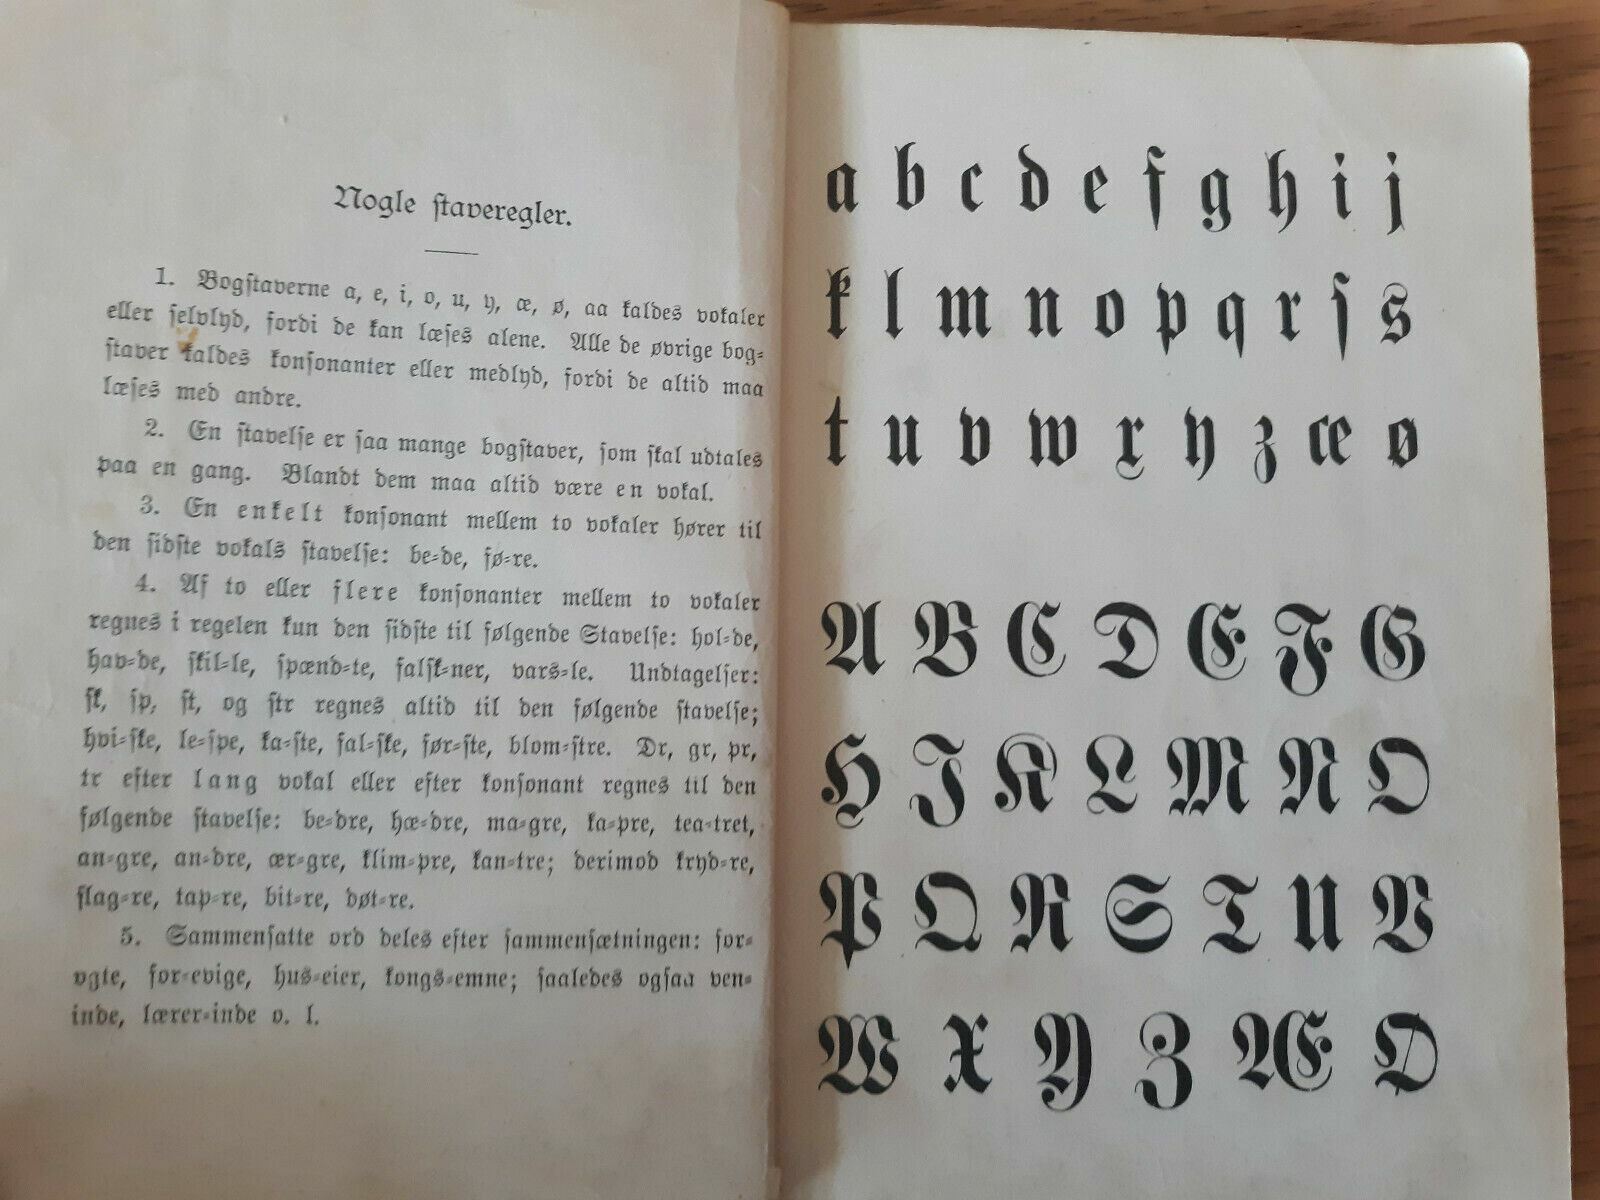 Nogle ſtaveregler.
1. Bogſtaverne a, e, i, o, u, y, æ, ø, aa kaldes vokaler
eller ſelvlyd, fordi de kan læſes alene. Alle de øvrige bog⸗
ſtaver kaldes konſonanter eller medlyd, fordi de altid maa
læſes med andre.
2. En ſtavelſe er ſaa mange bogſtaver, ſom ſkal udtales
paa en gang. Blandt dem maa altid være en vokal.
3. En enkelt konſonant mellem to vokaler hører til
den ſidſte vokals ſtavelſe: be⸗de, fø⸗re.
4. Af to eller flere konſonanter mellem to vokaler
regnes i regelen kun den ſidſte til følgende Stavelſe: hol⸗de,
hav⸗de, ſkil⸗le, ſpænd⸗te, falſk⸗ner, vars⸗le. Undtagelſer:
ſk, ſp, ſt, og ſtr regnes altid til den følgende ſtavelſe;
hvi⸗ſke, le⸗ſpe, ka⸗ſte, fal⸗ſke, før⸗ſte, blom⸗ſtre. Dr, gr, pr,
tr efter lang vokal eller efter konſonant regnes til den
følgende ſtavelſe: be⸗dre, hæ⸗dre, ma⸗gre, ka⸗pre, tea⸗tret,
an⸗gre, an⸗dre, ær⸗gre, klim⸗pre, kan⸗tre; derimod kryd⸗re,
flag⸗re, tap⸗re, bit⸗re, døt⸗re.
5. Sammenſatte ord deles efter ſammenſætningen: for⸗
ogte, for⸗evige, hus⸗eier, kongs⸗emne; ſaaledes ogſaa ven⸗
inde, lærer⸗inde o. l.
a b c d e f g h i j
k l m n o p q r ſ s
t u v w x y z æ ø
A B C D E F G
H J K L M N O
P Q R S T U V
W X Y Z Æ Ø